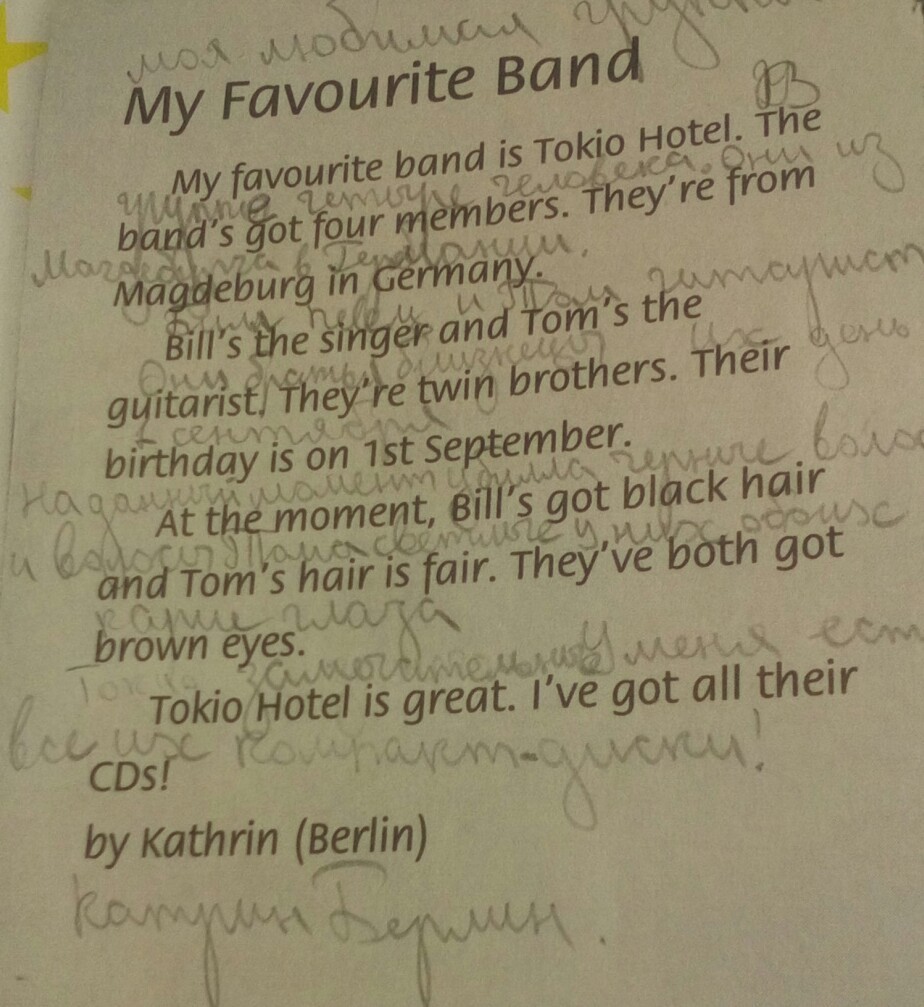 моя любимая
My Favourite Band
My favourite band is Tokio Hotel. The
группе четыре человека. Они из
band's got four members. They're from
Магдебурга в Германии.
Magdeburg in Germany.
певец и Том гитарист
Bill's the singer and Tom's the
Они браться близнецы Их день
guitarist. They're twin brothers. Their
1 сентября
birthday is on 1st September.
На данный момент у билла черные воло
At the moment, Bill's got black hair
и волосы Тома светлые у них обоих
and Tom's hair is fair. They've both got
карие глаза
brown eyes.
замечательный У меня ест
Tokio Hotel is great. I've got all their
все их компакт-диски!
CDs!
by Kathrin (Berlin)
Катрин Берлин.